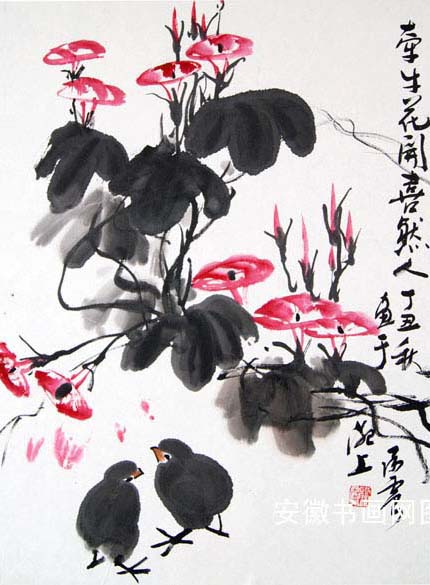 牵牛花开喜煞人
丁丑秋
画于
湖上
安徽书画网图